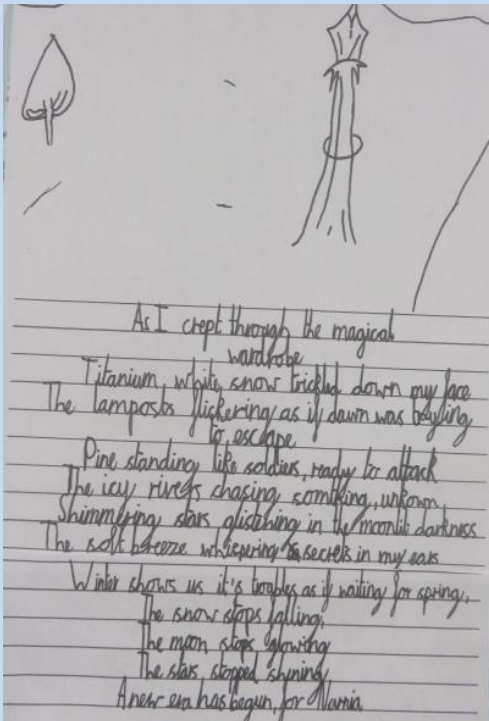 As I crept through the magical
wardrobe
Titanium, white, snow trickled down my face
The lamposts flickering as if dawn was
to, escape
Pine standing like soldiers, ready to attack
The icy rivers chasing somthing, unkown,
Shimmering stars glistening in the moonlit darkness
The soft breeze whispering secrets in my ears
Winter shows us it's troubles as if waiting for spring,
The snow stops falling,
The moon stops glowing
The stars, stopped shining,
A new era has begun, for Narnia.